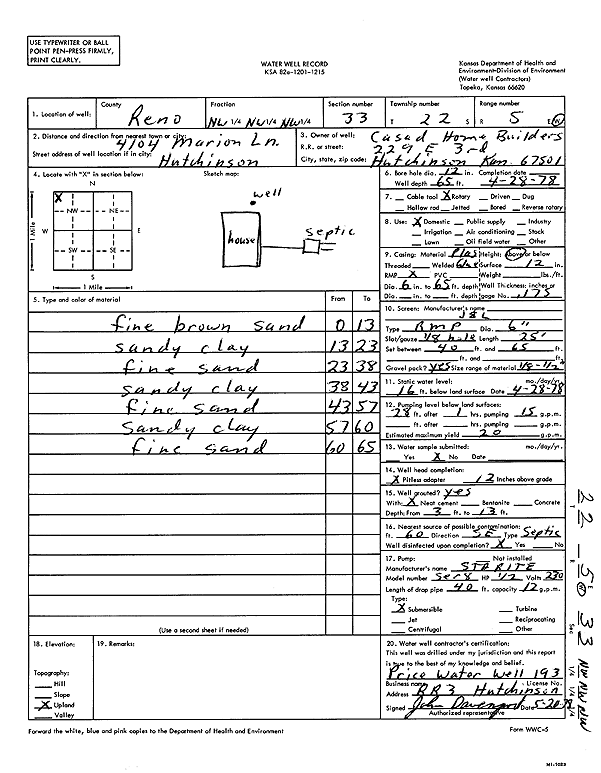 USE TYPEWRITER OR BALL
POINT PEN-PRESS FIRMLY,
PRINT CLEARLY.
WATER WELL RECORD
KSA 82a-1201-1215
Kansas Department of Health and
Environment-Division of Environment
(Water well Contractors)
Topeka, Kansas 66620
1. Location of well: County Reno Fraction NW 1/4 NW 1/4 NW 1/4 Section number 33 Township number T 22 S Range number R 5 E/W
2. Distance and direction from nearest town or city: 4104 Marion Ln.
Street address of well location if in city: Hutchinson
3. Owner of well: Casad Home Builders
R.R. or street: 229 E 3rd
City, state, zip code: Hutchinson Kan. 67501
4. Locate with "X" in section below:
N
X
NW NE
W E
SW SE
S
1 Mile
1 Mile
Sketch map:
well
house
septic
5. Type and color of material From To
fine brown sand 0 13
sandy clay 13 23
fine sand 23 38
sandy clay 38 43
fine sand 43 57
sandy clay 57 60
fine sand 60 65
(Use a second sheet if needed)
6. Bore hole dia. 12 in. Completion date
Well depth 65 ft. 4-28-78
7. Cable tool X Rotary Driven Dug
Hollow rod Jetted Bored Reverse rotary
8. Use: X Domestic Public supply Industry
Irrigation Air conditioning Stock
Lawn Oil field water Other
9. Casing: Material Plas Height: Above or below
Threaded Welded Glue Surface 12 in.
RMP X PVC Weight lbs./ft.
Dia. 6 in. to 65 ft. depth Wall Thickness: inches or
Dia. in. to ft. depth gage No. .175
10. Screen: Manufacturer's name
J&L
Type RMP Dia. 6"
Slot/gauze 1/8 hole Length 25'
Set between 40 ft. and 65 ft.
ft. and ft.
Gravel pack? yes Size range of material 1/8-1/2"
11. Static water level: mo./day/yr.
16 ft. below land surface Date 4-28-78
12. Pumping level below land surfaces:
28 ft. after 1 hrs. pumping 15 g.p.m.
ft. after hrs. pumping g.p.m.
Estimated maximum yield 20 g.p.m.
13. Water sample submitted: mo./day/yr.
Yes X No Date
14. Well head completion:
X Pitless adapter 12 Inches above grade
15. Well grouted? yes
With: X Neat cement Bentonite Concrete
Depth: From 3 ft. to 13 ft.
16. Nearest source of possible contamination:
ft. 60 Direction SE Type Septic
Well disinfected upon completion? X Yes No
17. Pump: Not installed
Manufacturer's name STARITE
Model number HP 1/2 Volts 230
Length of drop pipe 40 ft. capacity 12 g.p.m.
Type:
X Submersible Turbine
Jet Reciprocating
Centrifugal Other
18. Elevation:
Topography:
Hill
Slope
X Upland
Valley
19. Remarks:
20. Water well contractor's certification:
This well was drilled under my jurisdiction and this report
is true to the best of my knowledge and belief.
Price Water Well 193
Business name License No.
Address RR3 Hutchinson
Signed John Davenport Date 5-20-78
Authorized representative
Forward the white, blue and pink copies to the Department of Health and Environment
Form WWC-5
T 22 - R 5 E W Sec 33 NW NW NW
1/4 1/4 1/4